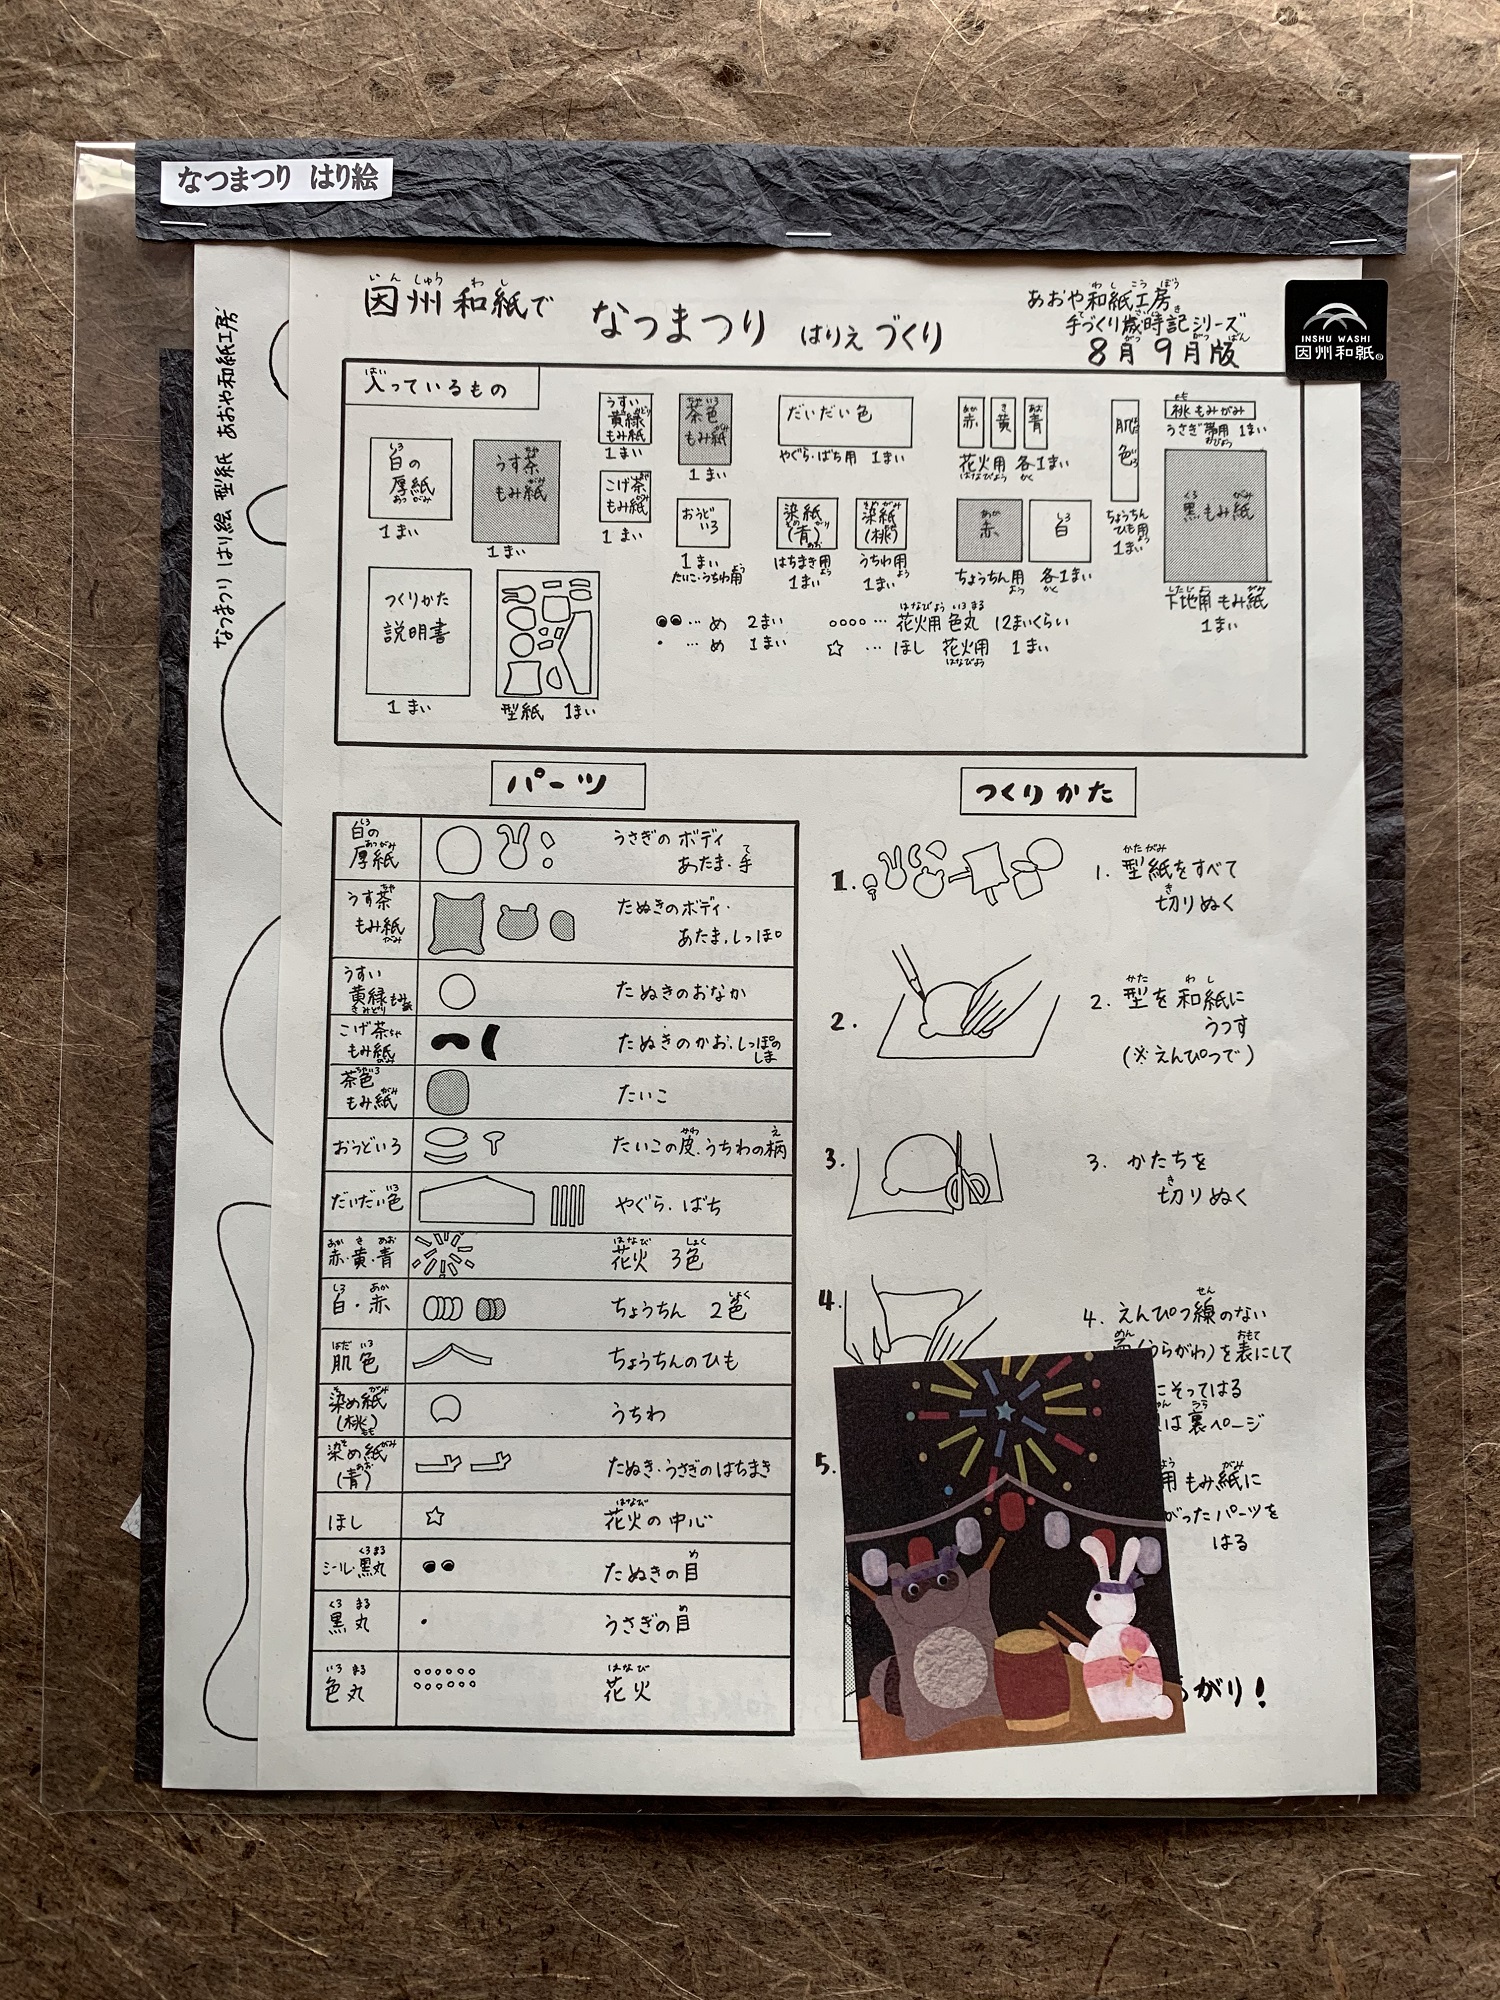 なつまつり はり絵
なつまつり はり絵 型紙 あおや和紙工房
因州和紙で なつまつり はりえ づくり
いんしゅう わし
あおや和紙工房
わしこうぼう
手づくり歳時記シリーズ
8月9月版
INSHU WASHI
因州和紙
入っているもの
白の
厚紙
1まい
うす茶
もみ紙
1まい
うすい
黄緑
もみ紙
1まい
こげ茶
もみ紙
1まい
茶色
もみ紙
1まい
おうど
いろ
1まい
たいこ・うちわ用
だいだい色
やぐら・ばち用 1まい
染紙
(青)
はちまき用
1まい
染紙
(桃)
うちわ用
1まい
赤 黄 青
花火用 各1まい
赤 白
ちょうちん用 各1まい
肌色
ちょうちん
ひも用
1まい
桃もみがみ
うさぎ帯用 1まい
黒もみ紙
下地用もみ紙
1まい
つくりかた
説明書
1まい
型紙 1まい
… め 2まい
… め 1まい
… 花火用 色丸 12まいくらい
… ほし 花火用 1まい
パーツ
白の
厚紙
うさぎのボディ
あたま・手
うす茶
もみ紙
たぬきのボディ・
あたま、しっぽ
うすい
黄緑もみ紙
たぬきのおなか
こげ茶
もみ紙
たぬきのかお、しっぽの
しま
茶色
もみ紙
たいこ
おうどいろ
たいこの皮、うちわの柄
だいだい色
やぐら・ばち
赤・黄・青
花火 3色
白・赤
ちょうちん 2色
肌色
ちょうちんのひも
染め紙
(桃)
うちわ
染め紙
(青)
たぬき・うさぎのはちまき
ほし
花火の中心
シール・黒丸
たぬきの目
黒丸
うさぎの目
色丸
花火
つくりかた
1.
1. 型紙をすべて
切りぬく
2.
2. 型を和紙に
うつす
(※えんぴつで)
3.
3. かたちを
切りぬく
4.
4. えんぴつ線のない
面(うらがわ)を表にして
にそってはる
は裏ページ
5.
用もみ紙に
がったパーツを
はる
がり!